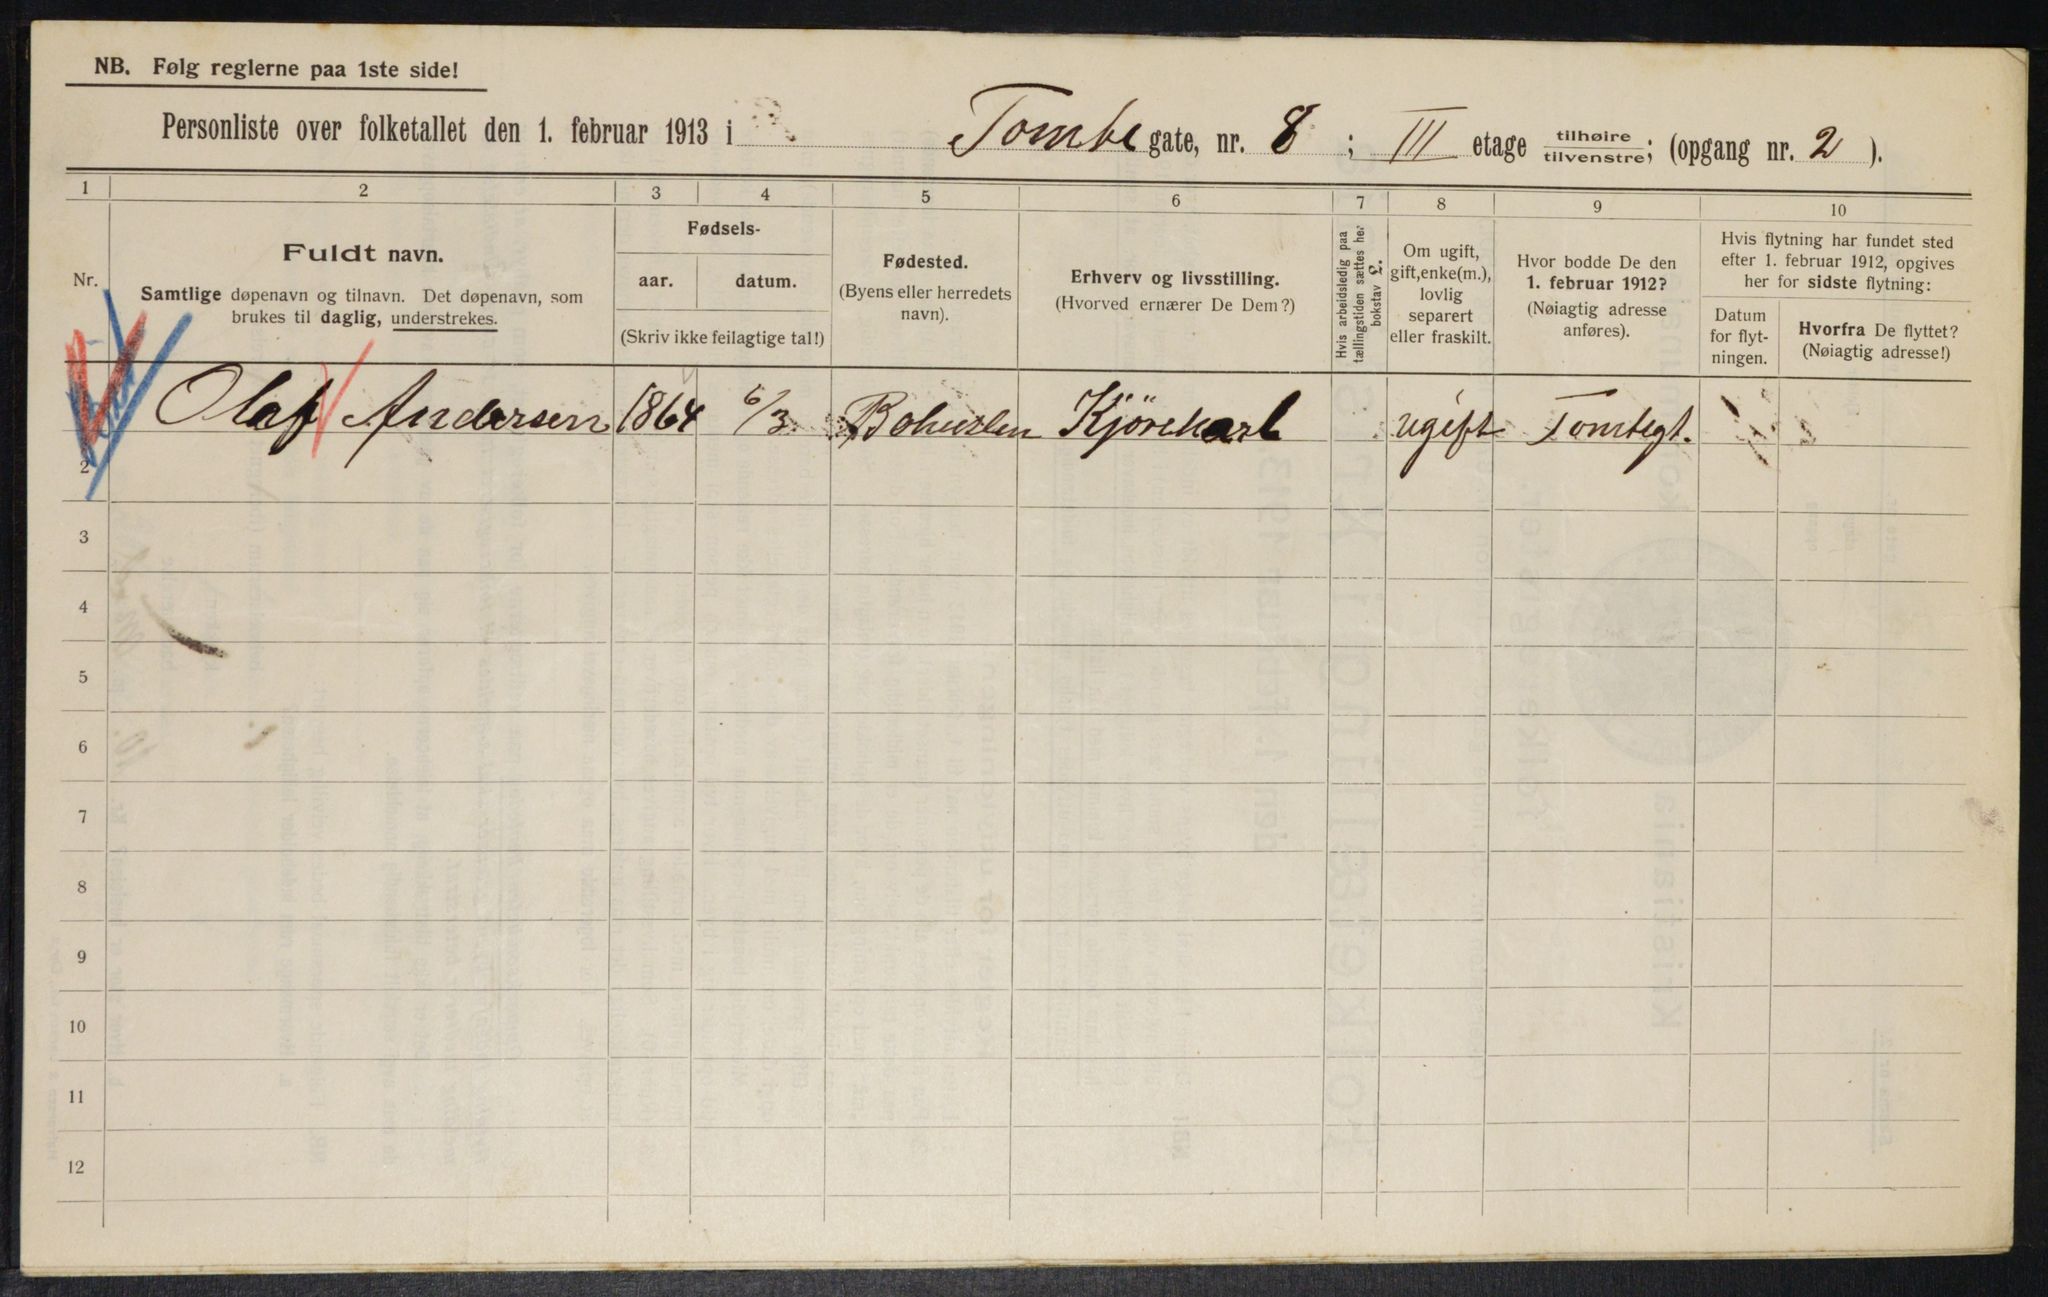 NB. Følg reglerne paa 1ste side!
Personliste over folketallet den 1. februar 1913 i Tomtegate, nr. 8; III etage tilhøire tilvenstre; (opgang nr. 2).
1 2 3 4 5 6 7 8 9 10
Nr.
Fuldt navn.
Samtlige døpenavn og tilnavn. Det døpenavn, som
brukes til daglig, understrekes.
Fødsels-
aar. datum.
(Skriv ikke feilagtige tal!)
Fødested.
(Byens eller herredets
navn).
Erhverv og livsstilling.
(Hvorved ernærer De Dem?)
Hvis arbeidsledig paa
tællingstiden sættes her
bokstav L.
Om ugift,
gift, enke(m.),
lovlig
separert
eller fraskilt.
Hvor bodde De den
1. februar 1912?
(Nøiagtig adresse
anføres).
Hvis flytning har fundet sted
efter 1. februar 1912, opgives
her for sidste flytning:
Datum
for flyt-
ningen.
Hvorfra De flyttet?
(Nøiagtig adresse!)
Olaf Andersen 1864 6/3 Bohuslen Kjørekarl ugift Tomtegt.
2
3
4
5
6
7
8
9
10
11
12